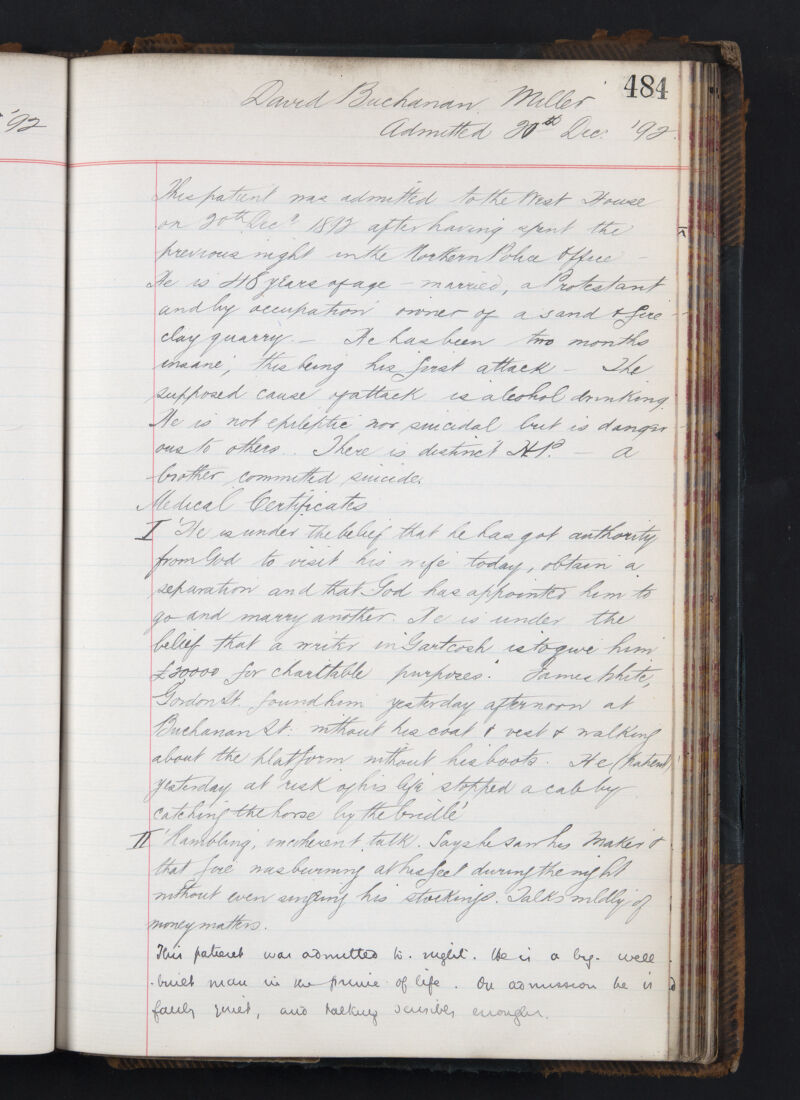 484
'92
David Buchanan Miller
Admitted 20th Dec: '92.
This patient was admitted to the West House
on 20th Decr 1892 after having spent the
previous night in the Northern Police Office –
He is 48 years of age – married, a Protestant
and by occupation owner of a sand & fire
clay quarry. – He has been two months
insane, this being his first attack – The
supposed cause of attack is alcohol drinking.
He is not epileptic nor suicidal but is danger
ous to others. There is distinct H.P. – a
brother committed suicide.
Medical Certificates
I 'He is under the belief that he has got authority
from God to visit his wife today, obtain a
separation and that God has appointed him to
go and marry another. He is under the
belief that a writer in Gartcosh is to give him
£20000 for charitable purposes.' James White,
Gordon St. found him yesterday afternoon at
Buchanan St: without his coat & vest & walking
about the platform without his boots. He (patient)
yesterday at risk of his life stopped a cab by
catching the horse by the bridle'
II 'Rambling, incoherent talk. Says he saw his Maker &
that fire was burning at his feet during the night
without even singeing his stockings. Talks wildly of
money matters.
This patient was admitted to-night. He is a big well
-built man in the prime of life. On admission he is
fairly quiet, and talking sensibly enough.